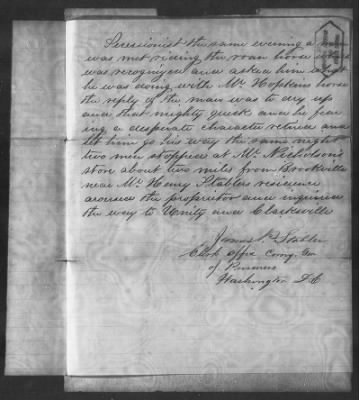 Secessionist the same evening a man
was met riding the roan horse
was recognized and asked him what
he was doing with Mr Hopkins horse
the reply of the man was to dry up
and that mighty quick and he fear
ing a desperate character retired and
let him go his way the same night
two men stopped at Mr Nicholson's
store about two miles from Brookville
near Mr Henry Stablers residence
aroused the proprietor and inquired
the way to Unity and Clarksville
Stabler
Clerk Office Comy Gen
of Prisoners
Washington D.C